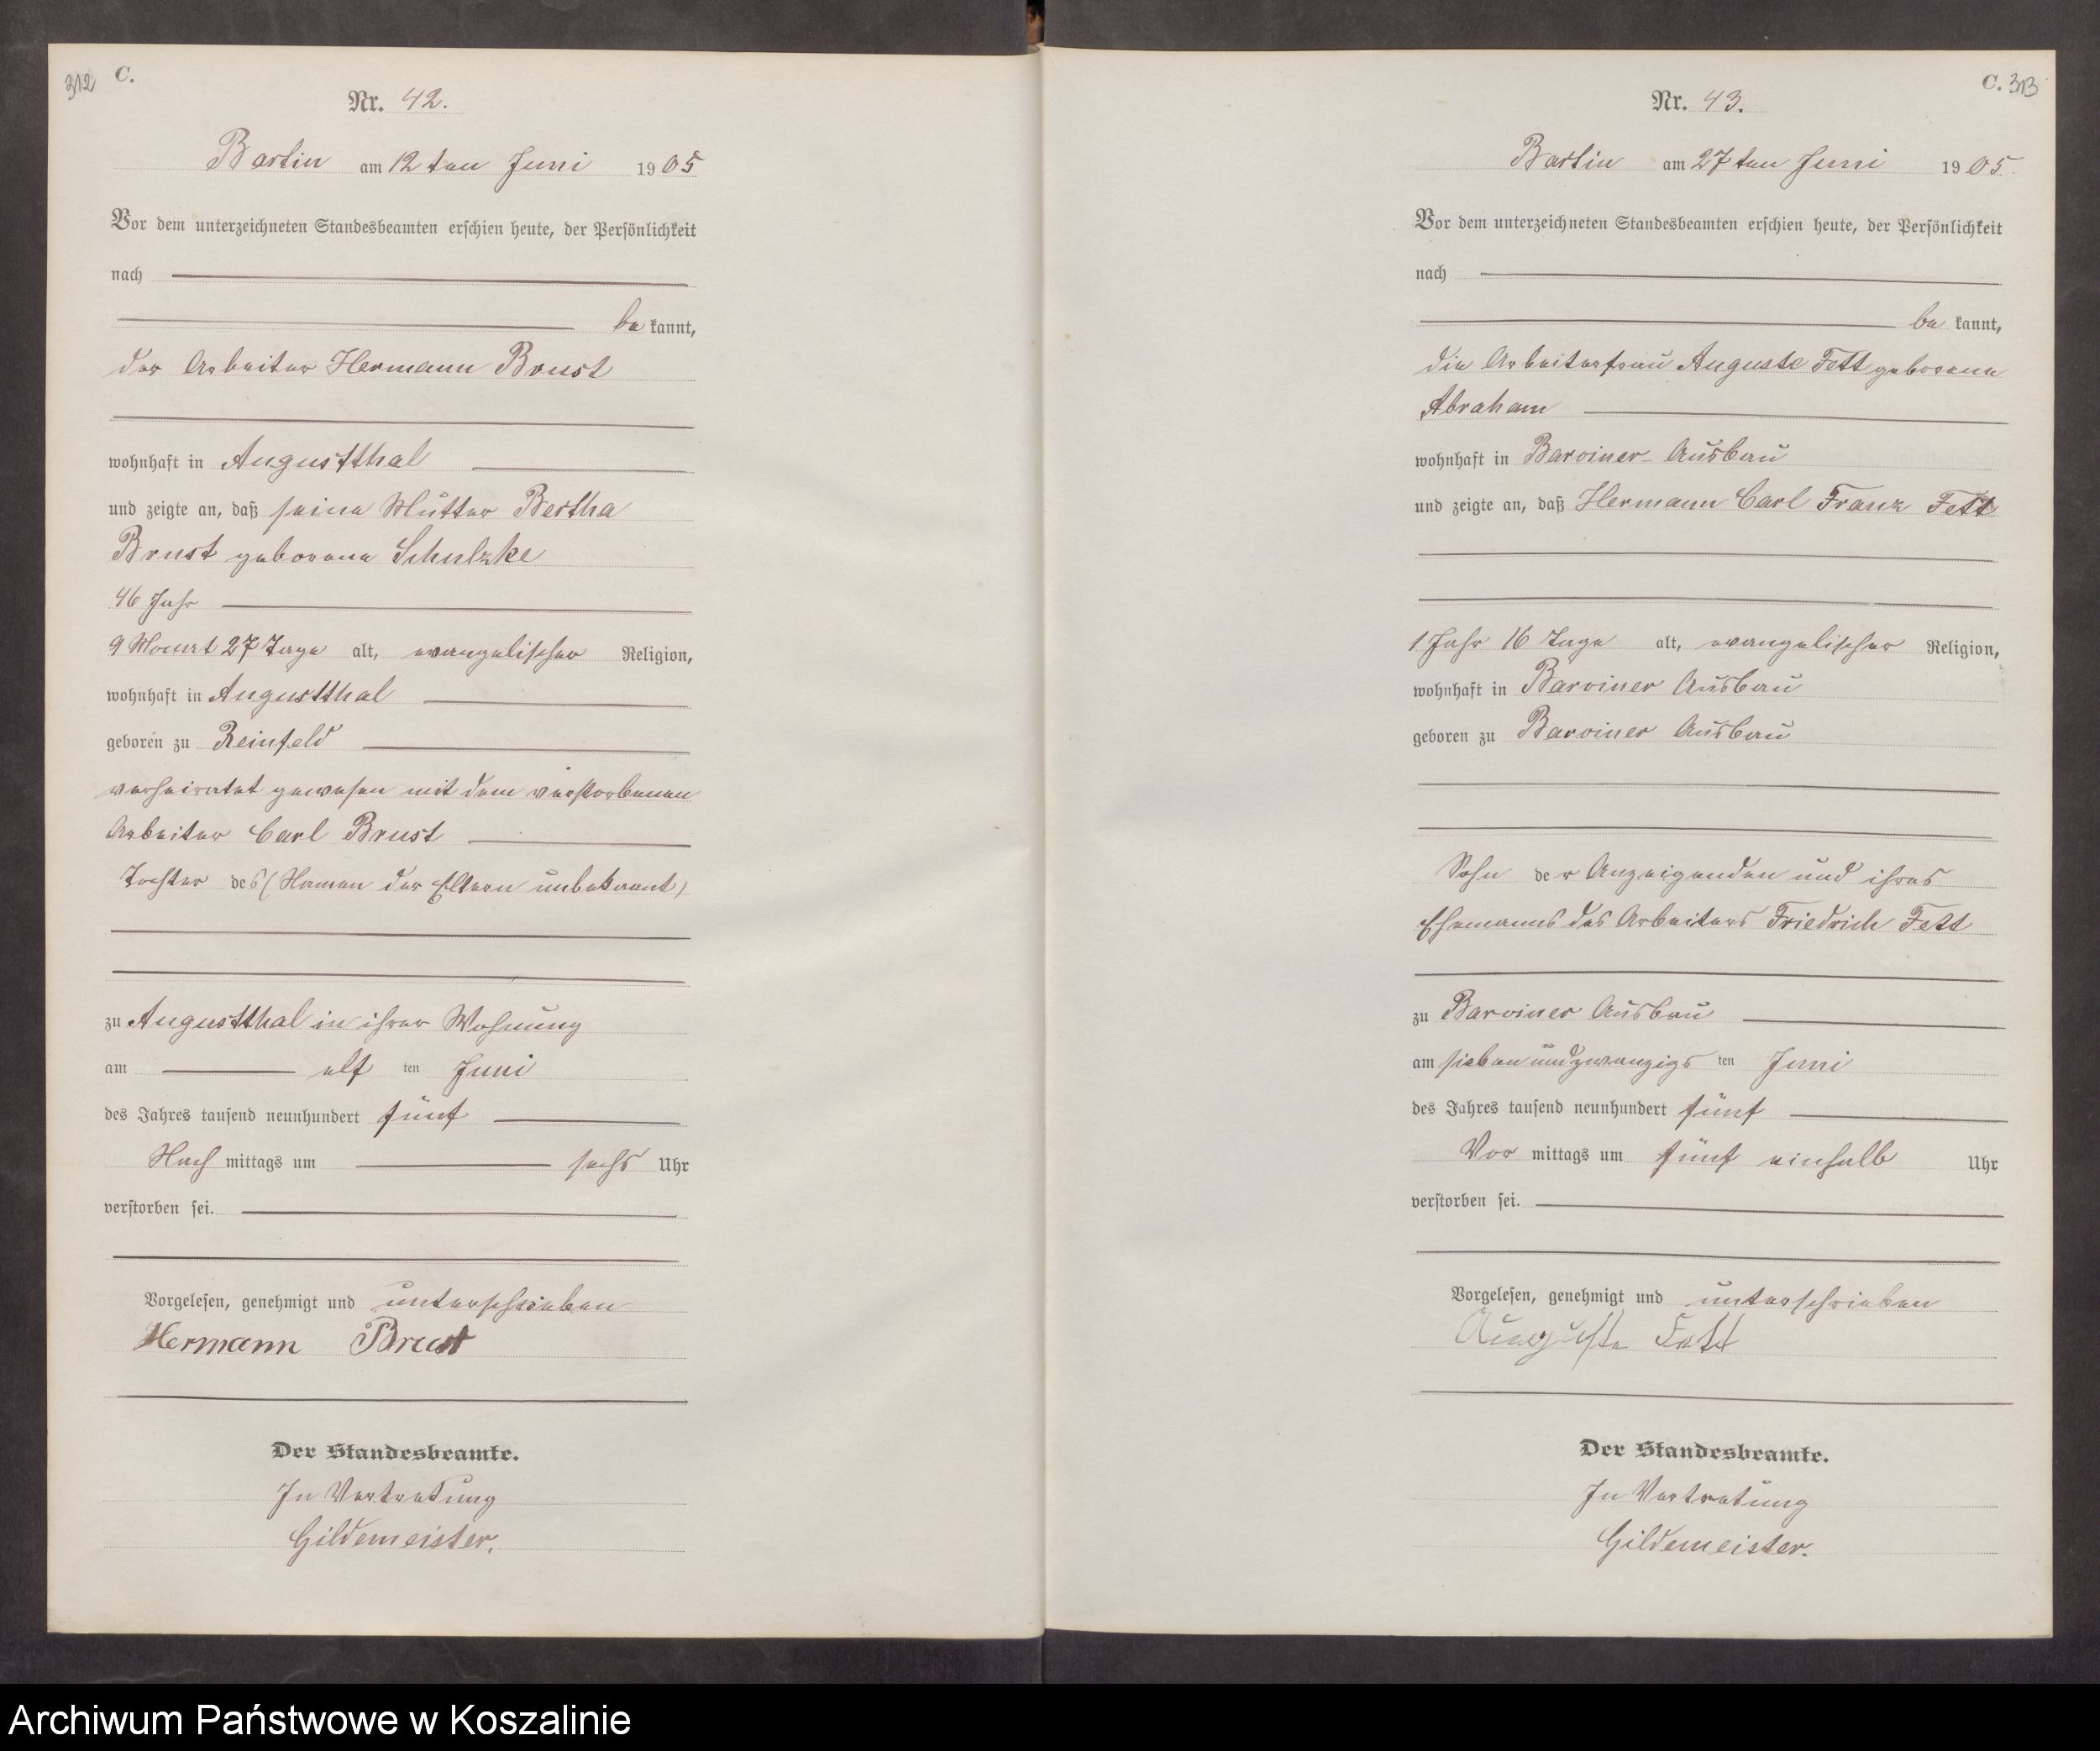 312 C.
Nr. 42.
Bartin am 12 ten Juni 1905
Vor dem unterzeichneten Standesbeamten erschien heute, der Persönlichkeit
nach
be kannt,
der Arbeiter Hermann Brust
wohnhaft in Augustthal
und zeigte an, daß seine Mutter Bertha
Brust geborene Schulzke
46 Jahr
9 Monat 27 Tage alt, evangelischer Religion,
wohnhaft in Augustthal
geboren zu Reinfeld
verheiratet gewesen mit dem verstorbenen
Arbeiter Carl Brust
Tochter des (Namen der Eltern unbekannt)
zu Augustthal in ihrer Wohnung
am elf ten Juni
des Jahres tausend neunhundert fünf
Nach mittags um sechs Uhr
verstorben sei.
Vorgelesen, genehmigt und unterschrieben
Hermann Brust
Der Standesbeamte.
In Vertretung
Gildemeister.
C. 313
Nr. 43.
Bartin am 27 ten Juni 1905.
Vor dem unterzeichneten Standesbeamten erschien heute, der Persönlichkeit
nach
be kannt,
die Arbeiterfrau Auguste Fett geborene
Abraham
wohnhaft in Barviner Ausbau
und zeigte an, daß Hermann Carl Franz Fett
1 Jahr 16 Tage alt, evangelischer Religion,
wohnhaft in Barviner Ausbau
geboren zu Barviner Ausbau
Sohn der Anzeigenden und ihres
Ehemanns des Arbeiters Friedrich Fett
zu Barviner Ausbau
am siebenundzwanzigs ten Juni
des Jahres tausend neunhundert fünf
Vor mittags um fünf einhalb Uhr
verstorben sei.
Vorgelesen, genehmigt und unterschrieben
Auguste Fett
Der Standesbeamte.
In Vertretung
Gildemeister.
Archiwum Państwowe w Koszalinie